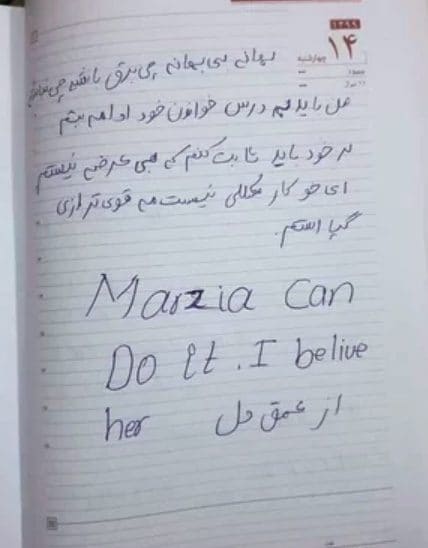 ۱۳۹۹
۱۴
چهارشنبه
بهانه بی بهانه چی برق باشه چی نباشه
من باید به درس خواندن خود ادامه بتم
به خود باید ثابت کنم که بی عرضه نیستم
ای خو کار مشکلی نیست مه قوی تر ازی
گپا استم.
Marzia Can
Do It. I belive
her از عمق دل